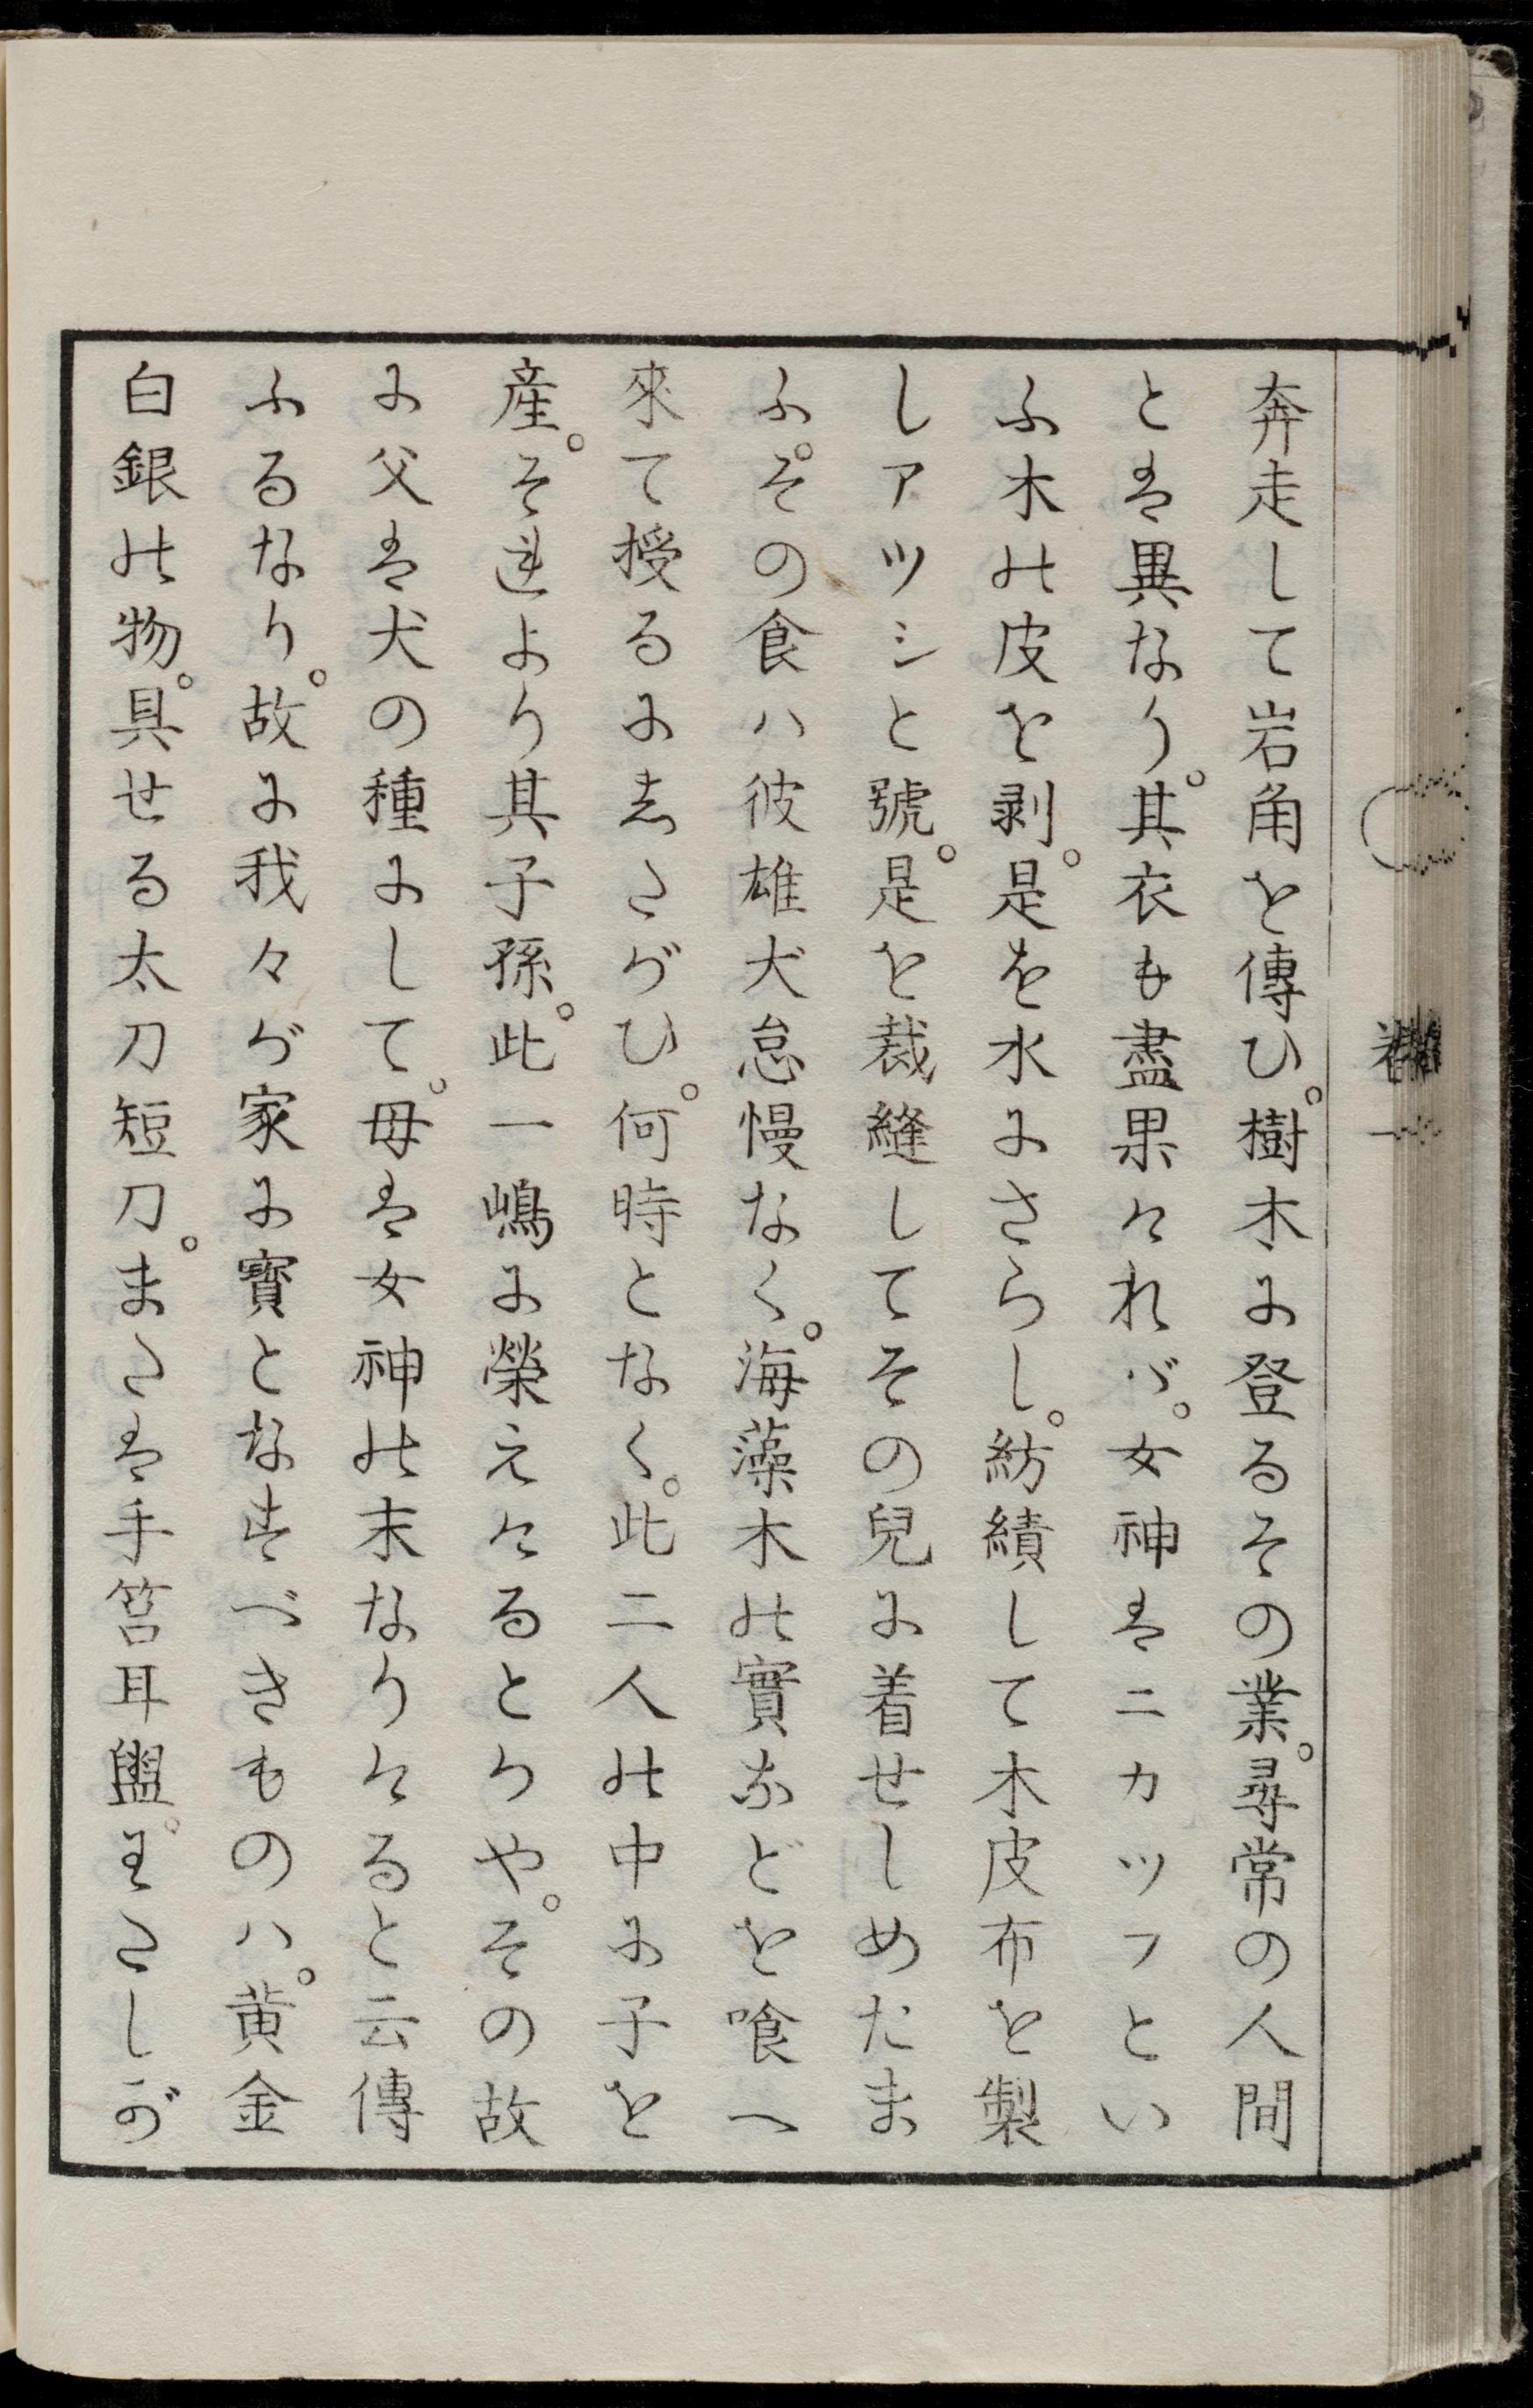 奔走して岩角を傳ひ。樹木に登るその業。尋常の人間
とは異なり。其衣も盡果ければ。女神はニカツフとい
ふ木の皮を剥。是を水にさらし。紡績して木皮布を製
しアツシと號。是を裁縫してその兒に着せしめたま
ふ。その食ハ彼雄犬怠慢なく。海藻木の實などを喰へ
來て授るにしたがひ。何時となく。此二人の中に子を
産。それより其子孫。此一嶋に榮えけるとかや。その故
に父は犬の種にして。母は女神の末なりけると云傳
ふるなり。故に我々が家に寳となすべきものハ。黄金
白銀の物。具せる太刀短刀。または手筥耳盥。わたしが
巻一